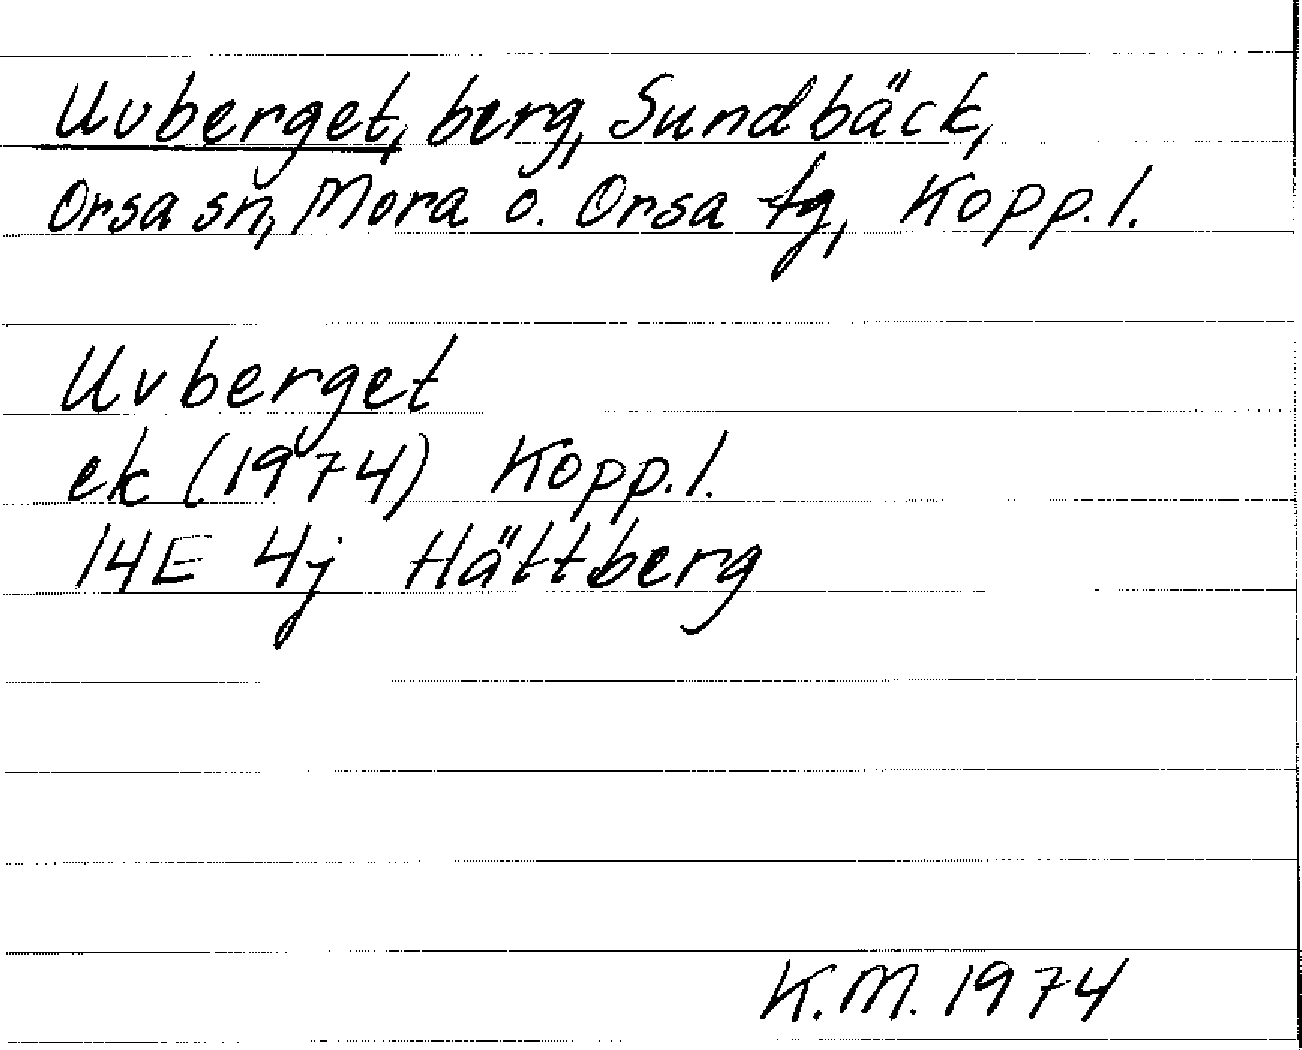 Uvberget, berg, Sundbäck,
Orsa sn, Mora o. Orsa tg, Kopp. l.
Uvberget
ek (1974) Kopp. l.
14E 4j Hättberg
K.M. 1974